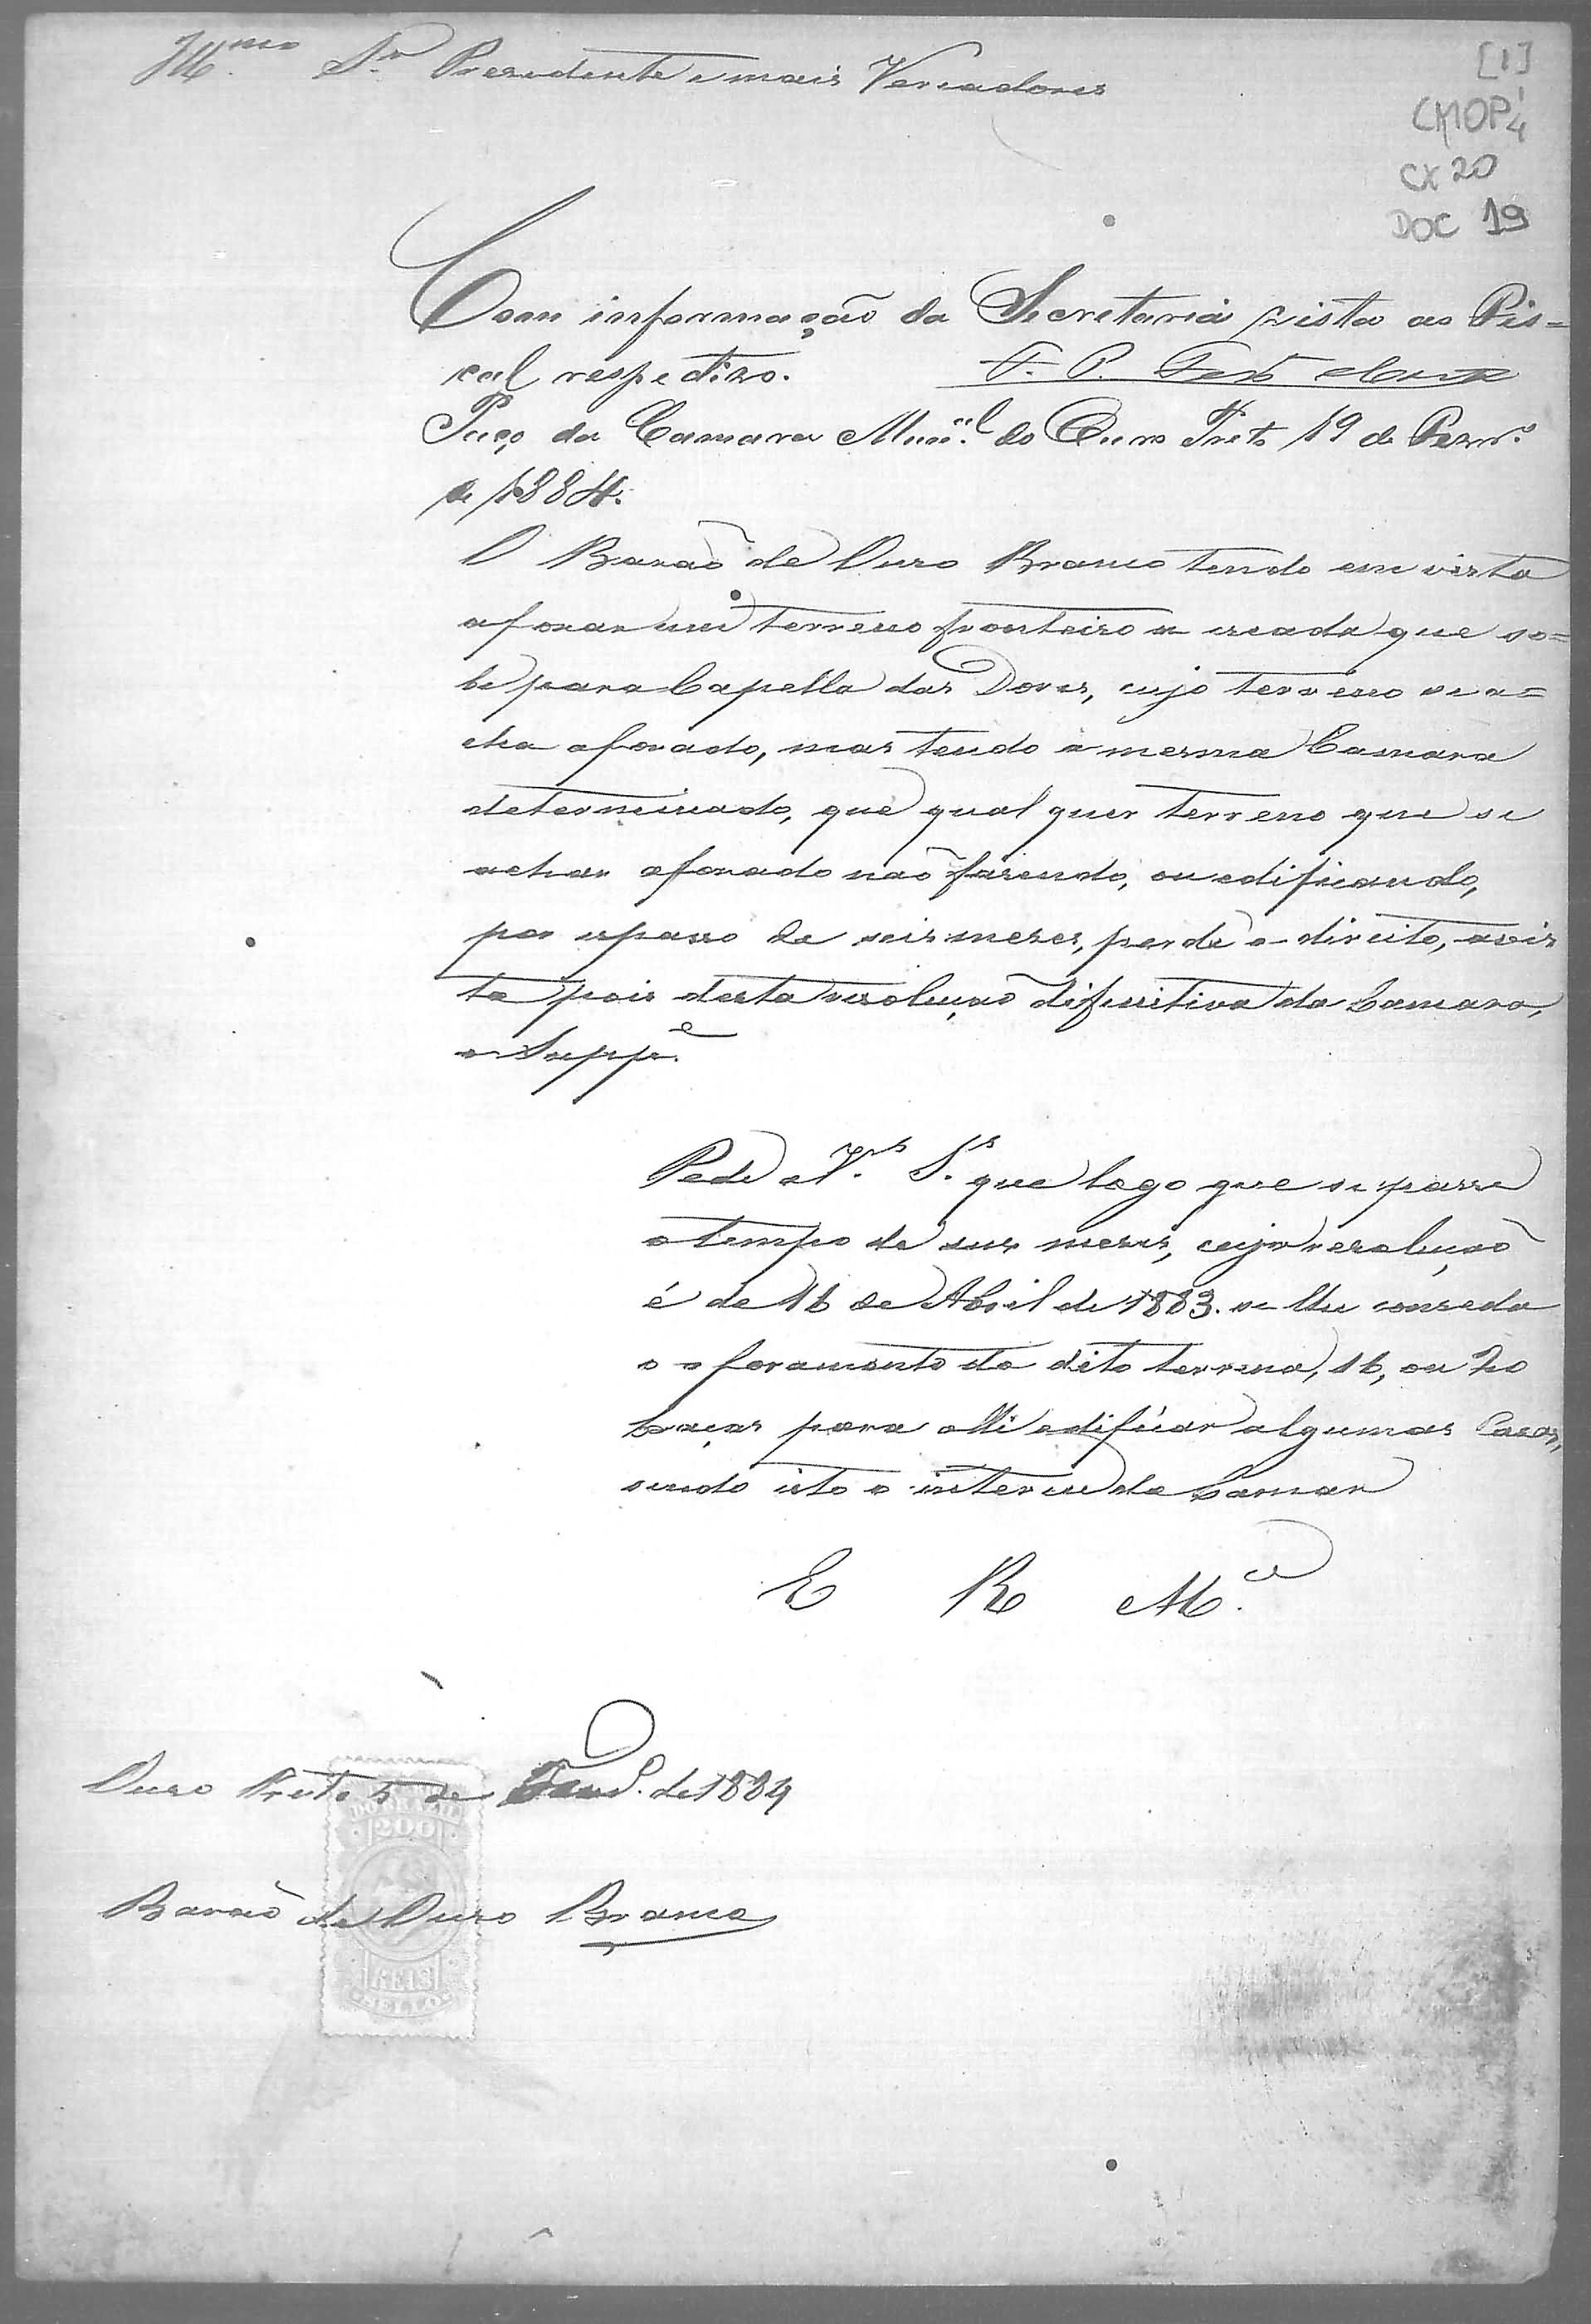 Illmo. Sr. Presidente e mais Vereadores
[1]
CMOP 1/4
CX 20
DOC 19
Com informação da Secretaria vista ao Fis=
cal respectivo.
Paço da Camara Munal. do Ouro Preto 19 de Fevro.
de 1884.
O Barão de Ouro Branco tendo em vista
aforar um terreno fronteiro a escada que so=
be para Capella das Dores, cujo terreno se a=
cha aforado, mas tendo a mesma Camara
determinado, que qual quer terreno que se
achar aforado não fasendo, ou edificando,
por espasso de seis meses, perde o direito, avis
ta pois desta resolução difinitiva da Camara,
o Suppe.
Pede a Vs. Ss. que logo que se passe
o tempo de seis meses, cuja resolução
é de 16 de Abril de 1883. se lhe conseda
o aforamento do dito terreno, 16, ou 20
braças para alli edificar algumas Casas,
sendo isto o interece da Camar
E R Mce.
Ouro Preto 5 de de 1884
DO BRAZIL
200
REIS
SELLO
Barão de Ouro Branco